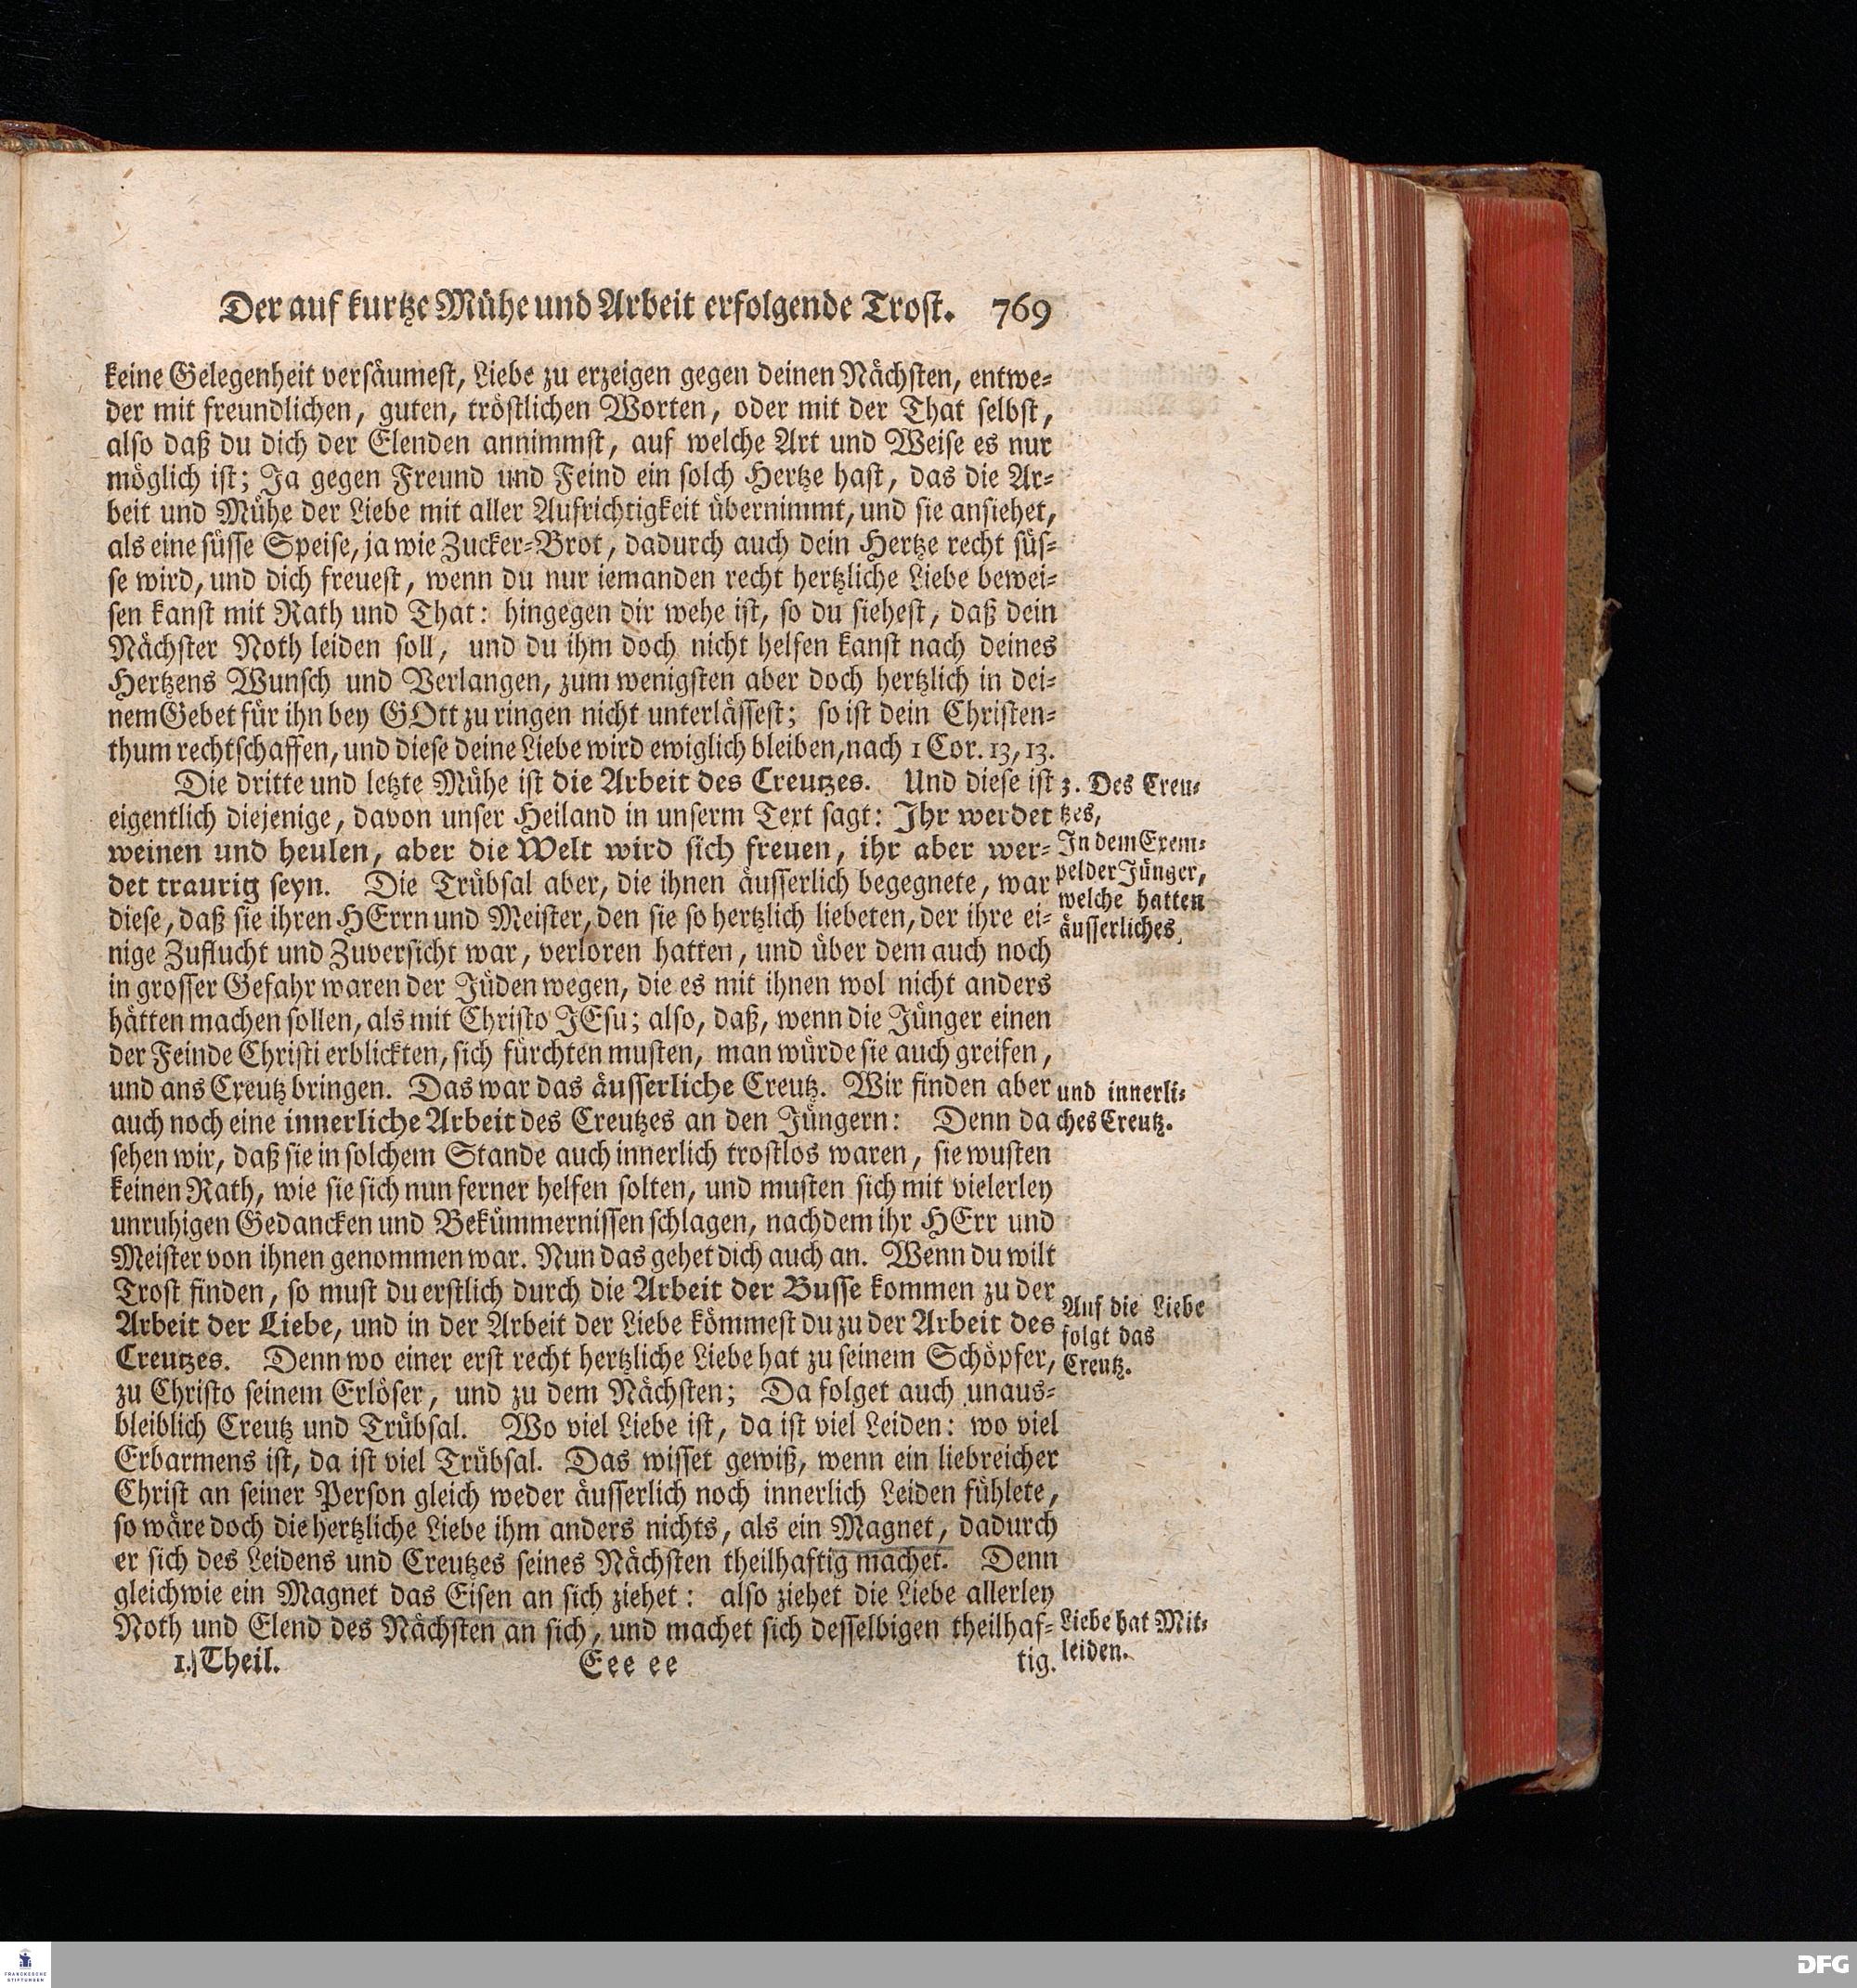 Der auf kurtze Mühe und Arbeit erfolgende Trost. 769
keine Gelegenheit versäumest, Liebe zu erzeigen gegen deinen Nächsten, entwe-
der mit freundlichen, guten, tröstlichen Worten, oder mit der That selbst,
also daß du dich der Elenden annimmst, auf welche Art und Weise es nur
möglich ist; Ja gegen Freund und Feind ein solch Hertze hast, das die Ar-
beit und Mühe der Liebe mit aller Aufrichtigkeit übernimmt, und sie ansiehet,
als eine süsse Speise, ja wie Zucker-Brot, dadurch auch dein Hertze recht süs-
se wird, und dich freuest, wenn du nur iemanden recht hertzliche Liebe bewei-
sen kanst mit Rath und That: hingegen dir wehe ist, so du siehest, daß dein
Nächster Noth leiden soll, und du ihm doch nicht helfen kanst nach deines
Hertzens Wunsch und Verlangen, zum wenigsten aber doch hertzlich in dei-
nem Gebet für ihn bey GOtt zu ringen nicht unterlässest; so ist dein Christen-
thum rechtschaffen, und diese deine Liebe wird ewiglich bleiben, nach 1 Cor. 13, 13.
Die dritte und letzte Mühe ist die Arbeit des Creutzes. Und diese ist
eigentlich diejenige, davon unser Heiland in unserm Text sagt: Ihr werdet
weinen und heulen, aber die Welt wird sich freuen, ihr aber wer-
det traurig seyn. Die Trübsal aber, die ihnen äusserlich begegnete, war
diese, daß sie ihren HErrn und Meister, den sie so hertzlich liebeten, der ihre ei-
nige Zuflucht und Zuversicht war, verloren hatten, und über dem auch noch
in grosser Gefahr waren der Jüden wegen, die es mit ihnen wol nicht anders
hätten machen sollen, als mit Christo JEsu; also, daß, wenn die Jünger einen
der Feinde Christi erblickten, sich fürchten musten, man würde sie auch greifen,
und ans Creutz bringen. Das war das äusserliche Creutz. Wir finden aber
auch noch eine innerliche Arbeit des Creutzes an den Jüngern: Denn da
sehen wir, daß sie in solchem Stande auch innerlich trostlos waren, sie wusten
keinen Rath, wie sie sich nun ferner helfen solten, und musten sich mit vielerley
unruhigen Gedancken und Bekümmernissen schlagen, nachdem ihr HErr und
Meister von ihnen genommen war. Nun das gehet dich auch an. Wenn du wilt
Trost finden, so must du erstlich durch die Arbeit der Busse kommen zu der
Arbeit der Liebe, und in der Arbeit der Liebe kömmest du zu der Arbeit des
Creutzes. Denn wo einer erst recht hertzliche Liebe hat zu seinem Schöpfer,
zu Christo seinem Erlöser, und zu dem Nächsten; Da folget auch unaus-
bleiblich Creutz und Trübsal. Wo viel Liebe ist, da ist viel Leiden: wo viel
Erbarmens ist, da ist viel Trübsal. Das wisset gewiß, wenn ein liebreicher
Christ an seiner Person gleich weder äusserlich noch innerlich Leiden fühlete,
so wäre doch die hertzliche Liebe ihm anders nichts, als ein Magnet, dadurch
er sich des Leidens und Creutzes seines Nächsten theilhaftig machet. Denn
gleichwie ein Magnet das Eisen an sich ziehet: also ziehet die Liebe allerley
Noth und Elend des Nächsten an sich, und machet sich desselbigen theilhaf-
1. Theil. Eee ee tig.
3. Des Creu-
tzes,
In dem Exem-
pel der Jünger,
welche hatten
äusserliches,
und innerli-
ches Creutz.
Auf die Liebe
folgt das
Creutz.
Liebe hat Mit-
leiden.
FRANCKESCHE
STIFTUNGEN
DFG